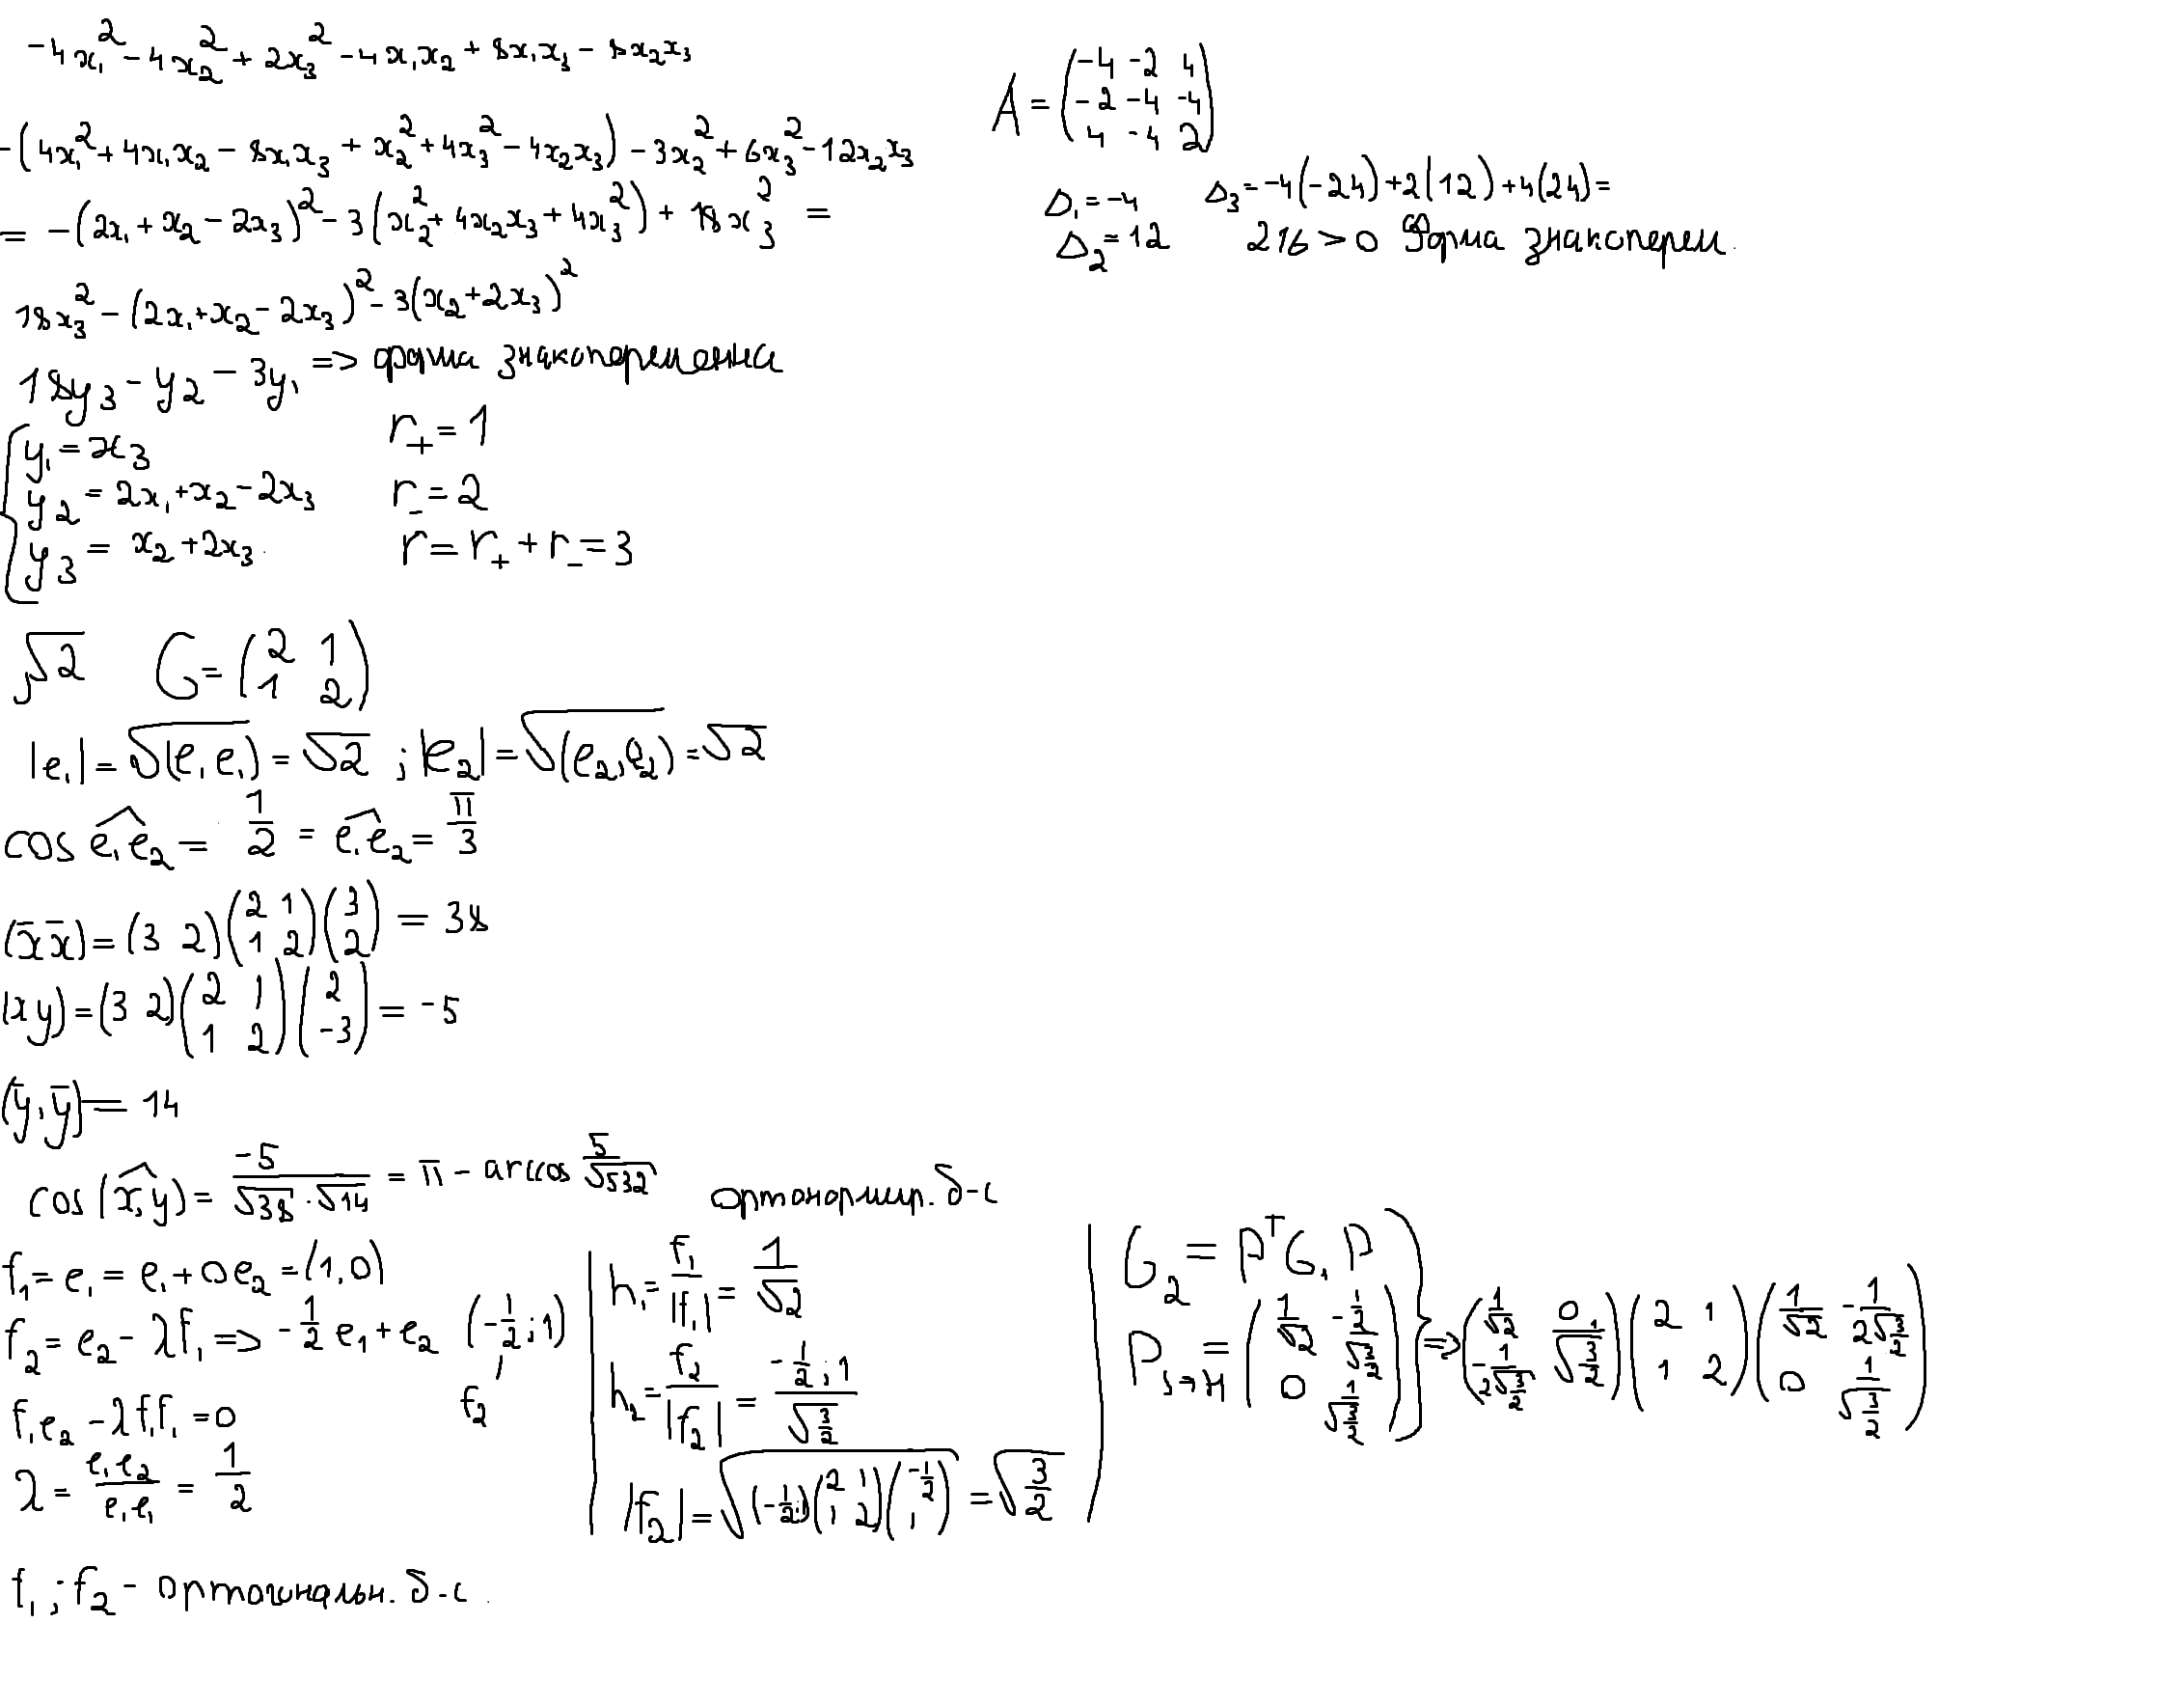 -4x₁² - 4x₂² + 2x₃² - 4x₁x₂ + 8x₁x₃ - 8x₂x₃
-(4x₁² + 4x₁x₂ - 8x₁x₃ + x₂² + 4x₃² - 4x₂x₃) - 3x₂² + 6x₃² - 12x₂x₃
= -(2x₁ + x₂ - 2x₃)² - 3(x₂² + 4x₂x₃ + 4x₃²) + 18x₃² =
18x₃² - (2x₁ + x₂ - 2x₃)² - 3(x₂ + 2x₃)²
18y₃ - y₂ - 3y₁ => форма знакопеременна
{ y₁ = x₃
y₂ = 2x₁ + x₂ - 2x₃
y₃ = x₂ + 2x₃
r₊ = 1
r₋ = 2
r = r₊ + r₋ = 3
A = (-4 -2 4; -2 -4 -4; 4 -4 2)
Δ₁ = -4
Δ₂ = 12
Δ₃ = -4(-24) + 2(12) + 4(24) =
216 > 0 Форма знакоперем.
√2 G = (2 1; 1 2)
|e₁| = √(e₁e₁) = √2 ; |e₂| = √(e₂,e₂) = √2
cos e₁e₂ = 1/2 = e₁e₂ = π/3
(x̄x̄) = (3 2)(2 1; 1 2)(3; 2) = 38
(xy) = (3 2)(2 1; 1 2)(2; -3) = -5
(ȳ,ȳ) = 14
cos(x,y) = -5/(√38·√14) = π - arccos 5/√532
f₁ = e₁ = e₁ + 0e₂ = (1,0)
f₂ = e₂ - λf₁ => -1/2 e₁ + e₂ (-1/2; 1)
f₂
f₁e₂ - λf₁f₁ = 0
λ = e₁e₂/e₁e₁ = 1/2
f₁; f₂ - ортогональн. б-с.
ортонормир. б-с
h₁ = f₁/|f₁| = 1/√2
h₂ = f₂/|f₂| = (-1/2; 1)/√(3/2)
|f₂| = √((-1/2;1)(2 1; 1 2)(-1/2; 1)) = √(3/2)
G₂ = PᵀG₁P
P_{s→н} = (1/√2 -1/2/√(3/2); 0 1/√(3/2)) } => (1/√2 0; -1/2√(3/2) 1/√(3/2))(2 1; 1 2)(1/√2 -1/2√(3/2); 0 1/√(3/2))